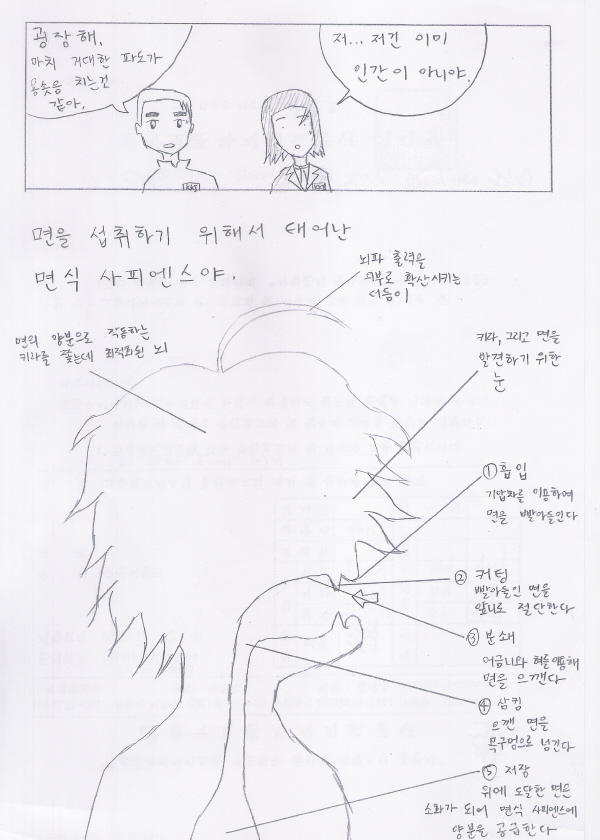 굉장해,
마치 거대한 파도가
용솟음 치는것
같아.
저... 저건 이미
인간이 아니야.
면을 섭취하기 위해서 태어난
면식 사피엔스야.
뇌파 출력을
외부로 확산시키는
더듬이
면의 양분으로 작동하는
키라를 쫓는데 최적화된 뇌
키라, 그리고 면을
발견하기 위한
눈
① 흡입
기압차를 이용하여
면을 빨아들인다
② 커팅
빨아들인 면을
앞니로 절단한다
③ 분쇄
어금니와 혀를 통해
면을 으깬다
④ 삼킴
으깬 면을
목구멍으로 넘긴다
⑤ 저장
위에 도달한 면은
소화가 되어 면식 사피엔스에
양분을 공급한다